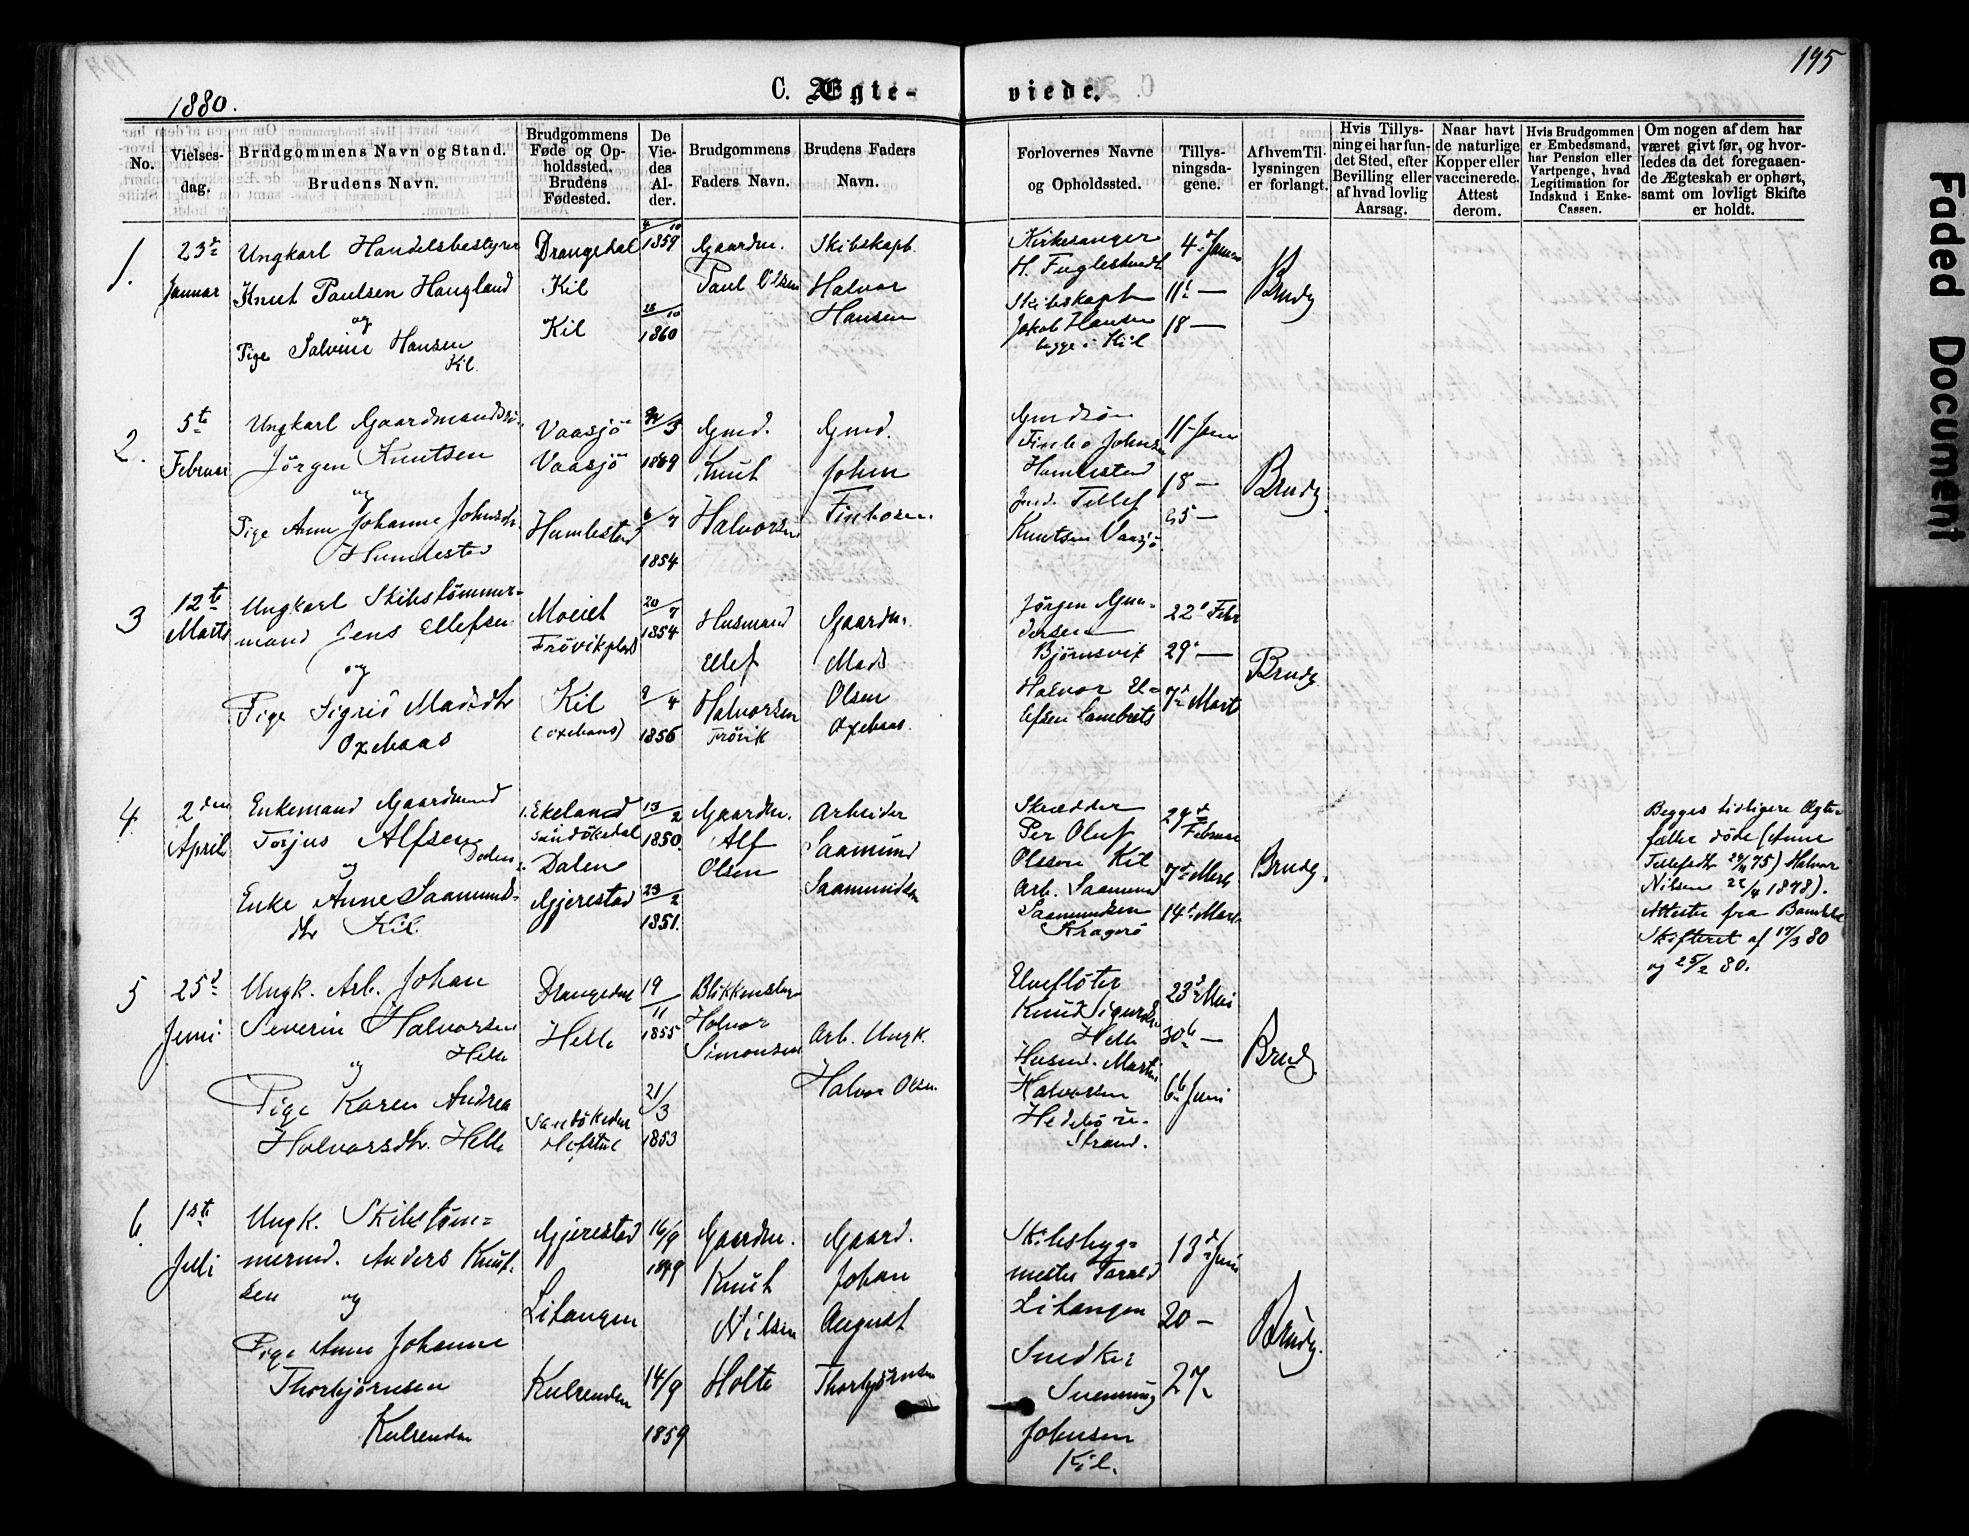 195
1880.
C. Ægte-
viede.
No.
Vielses-
dag.
Brudgommens Navn og Stand.
Brudens Navn.
Brudgommens
Føde og Op-
holdssted.
Brudens
Fødested.
De
Vie-
des
Al-
der.
Brudgommens
Faders Navn.
Brudens Faders
Navn.
Forlovernes Navne
og Opholdssted.
Tillys-
ningsda-
gene.
Af hvem Til-
lysningen
er forlangt.
Hvis Tillys-
ning ei har fun-
det Sted, efter
Bevilling eller
af hvad lovlig
Aarsag.
Naar havt
de naturlige
Kopper eller
vaccinerede.
Attest
derom.
Hvis Brudgommen
er Embedsmand,
har Pension eller
Vartpenge, hvad
Legitimation for
Indskud i Enke-
Cassen.
Om nogen af dem har
været givt før, og hvor-
ledes da det foregaaen-
de Ægteskab er ophørt,
samt om lovligt Skifte
er holdt.
1.
23de
Januar
Ungkarl Handelsbestyrer
Knut Paulsen Haugland
og
Pige Salvine Hansen
Kil.
Drangedal
Kil
Kil
1859
1860
Gaardm.
Paul Olsen
Skibskapt.
Halvor
Hansen
Kirkesanger
H. Fuglestvedt
Skibskapt
Jakob Hansen
begge i Kil
4de Januar
11te —
18 —
Brudg
2.
5te
Februar
Ungkarl Gaardmandssøn
Jørgen Knutsen
og
Pige Anne Johanne Johnsdtr
Humlestad
Vaasjö
Vaasjö
Humlestad
6/7
1854
Gmd.
Knut
Halvorsen
Gmd.
John
Finbosen.
Gmdsøn
Finbo Johnsen
Humlestad
Gmd. Tellef
Knutsen Vaasjö
11te Janu
18 —
25 —
Brudg.
3
12te
Marts
Ungkarl Skibstömmer-
mand Jens Ellefsen
og
Pige Sigris Madsdtr
Oxebaas
Moeiet
Frövikplads
Kil
(Oxebaas)
20/7
1854
9/4
1856
Husmand
Ellef
Halvorsen
Frövik
Gaardm.
Mads
Olsen
Oxebaas.
Jørgen Gun-
dersen
Bjørnsvik
Halvor El-
lefsen
22de Febr
29de —
7de Marts
Brudg.
4.
2den
April
Enkemand Gaardmand
Torjus Alfsen
Dalen
og
Enke Anne Saamunds-
dtr Kil.
1. Ekeland
Sandökedal
2. Dalen
Gjerestad
13/2
1850.
23/2
1851.
Gaardm.
Alf
Olsen
Arbeider
Saamund
Saamundsen
Skrædder
Per Oluf
Olsson Kil
Arb. Saamund
Saamundsen
Kragerö
29de
Februar
7de Marts
14de Marts
Brudg.
Begges tidligere Ægte-
fæller döde (Anne
Tellefsdtr 75) Halvor
Nilsen 1878).
Attester fra Bamble
Skifteret af 17/3 80
og 25/2 80.
5
25de
Juni.
Ungk. Arb. Johan
Severin Halvorsen
Helle
og
Pige Karen Andrea
Halvorsdtr. Helle
Drangedal
Helle
Sandökedal
19/11
1855
21/3
1853
Blikkenslag
Halvor
Simonsen
Arb. Ungk.
Halvor Olsen
Elvefløter
Knud Sigurdsen
Helle
Husmd. Martin
Halvorsen
Strand.
23de Mai
30te —
6te Juni
Brudg.
6.
1ste
Juli
Ungk. Skibstöm-
mermd. Anders Knut-
sen og
Pige Anne Johanne
Thorbjørnsen
Kulrenden
Gjerestad
Litangen
Kulrenden
16/9
1849
14/9
1859
Gaardm.
Knut
Nilsen
Holte
Gaard.
Johan
August
Thorbjörnsen
Skibsbyg-
mester Tarald
Litangen
Snedker
Svennung
Johnsen
Kil.
13de Juni
20 —
27.
Brudg.
Faded Document